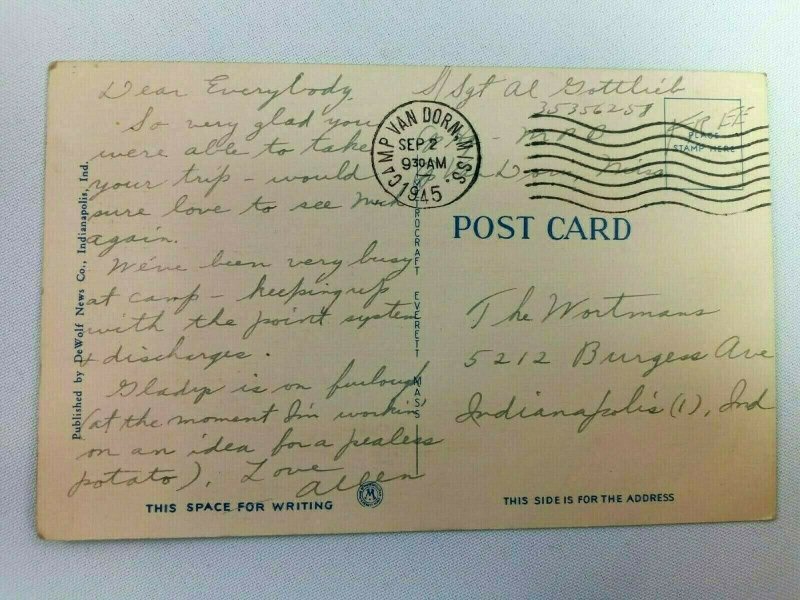 Dear Everybody,
So very glad you
were able to take
your trip - would
sure love to see Mich
again.
We've been very busy
at camp - keeping up
with the point system
& discharges.
Gladys is on furlough
(at the moment I'm workin'
on an idea for a pealess
potato). Love
Allen
THIS SPACE FOR WRITING
Published by DeWolf News Co., Indianapolis, Ind.
EVERETT MASS
S/Sgt Al Gottlieb
35356258
M.P.D
Van Dorn, Miss
CAMP VAN DORN, MISS.
SEP 2
9 30 AM
1945
FREE
PLACE
STAMP HERE
POST CARD
The Wortmans
5212 Burgess Ave
Indianapolis (1), Ind
THIS SIDE IS FOR THE ADDRESS